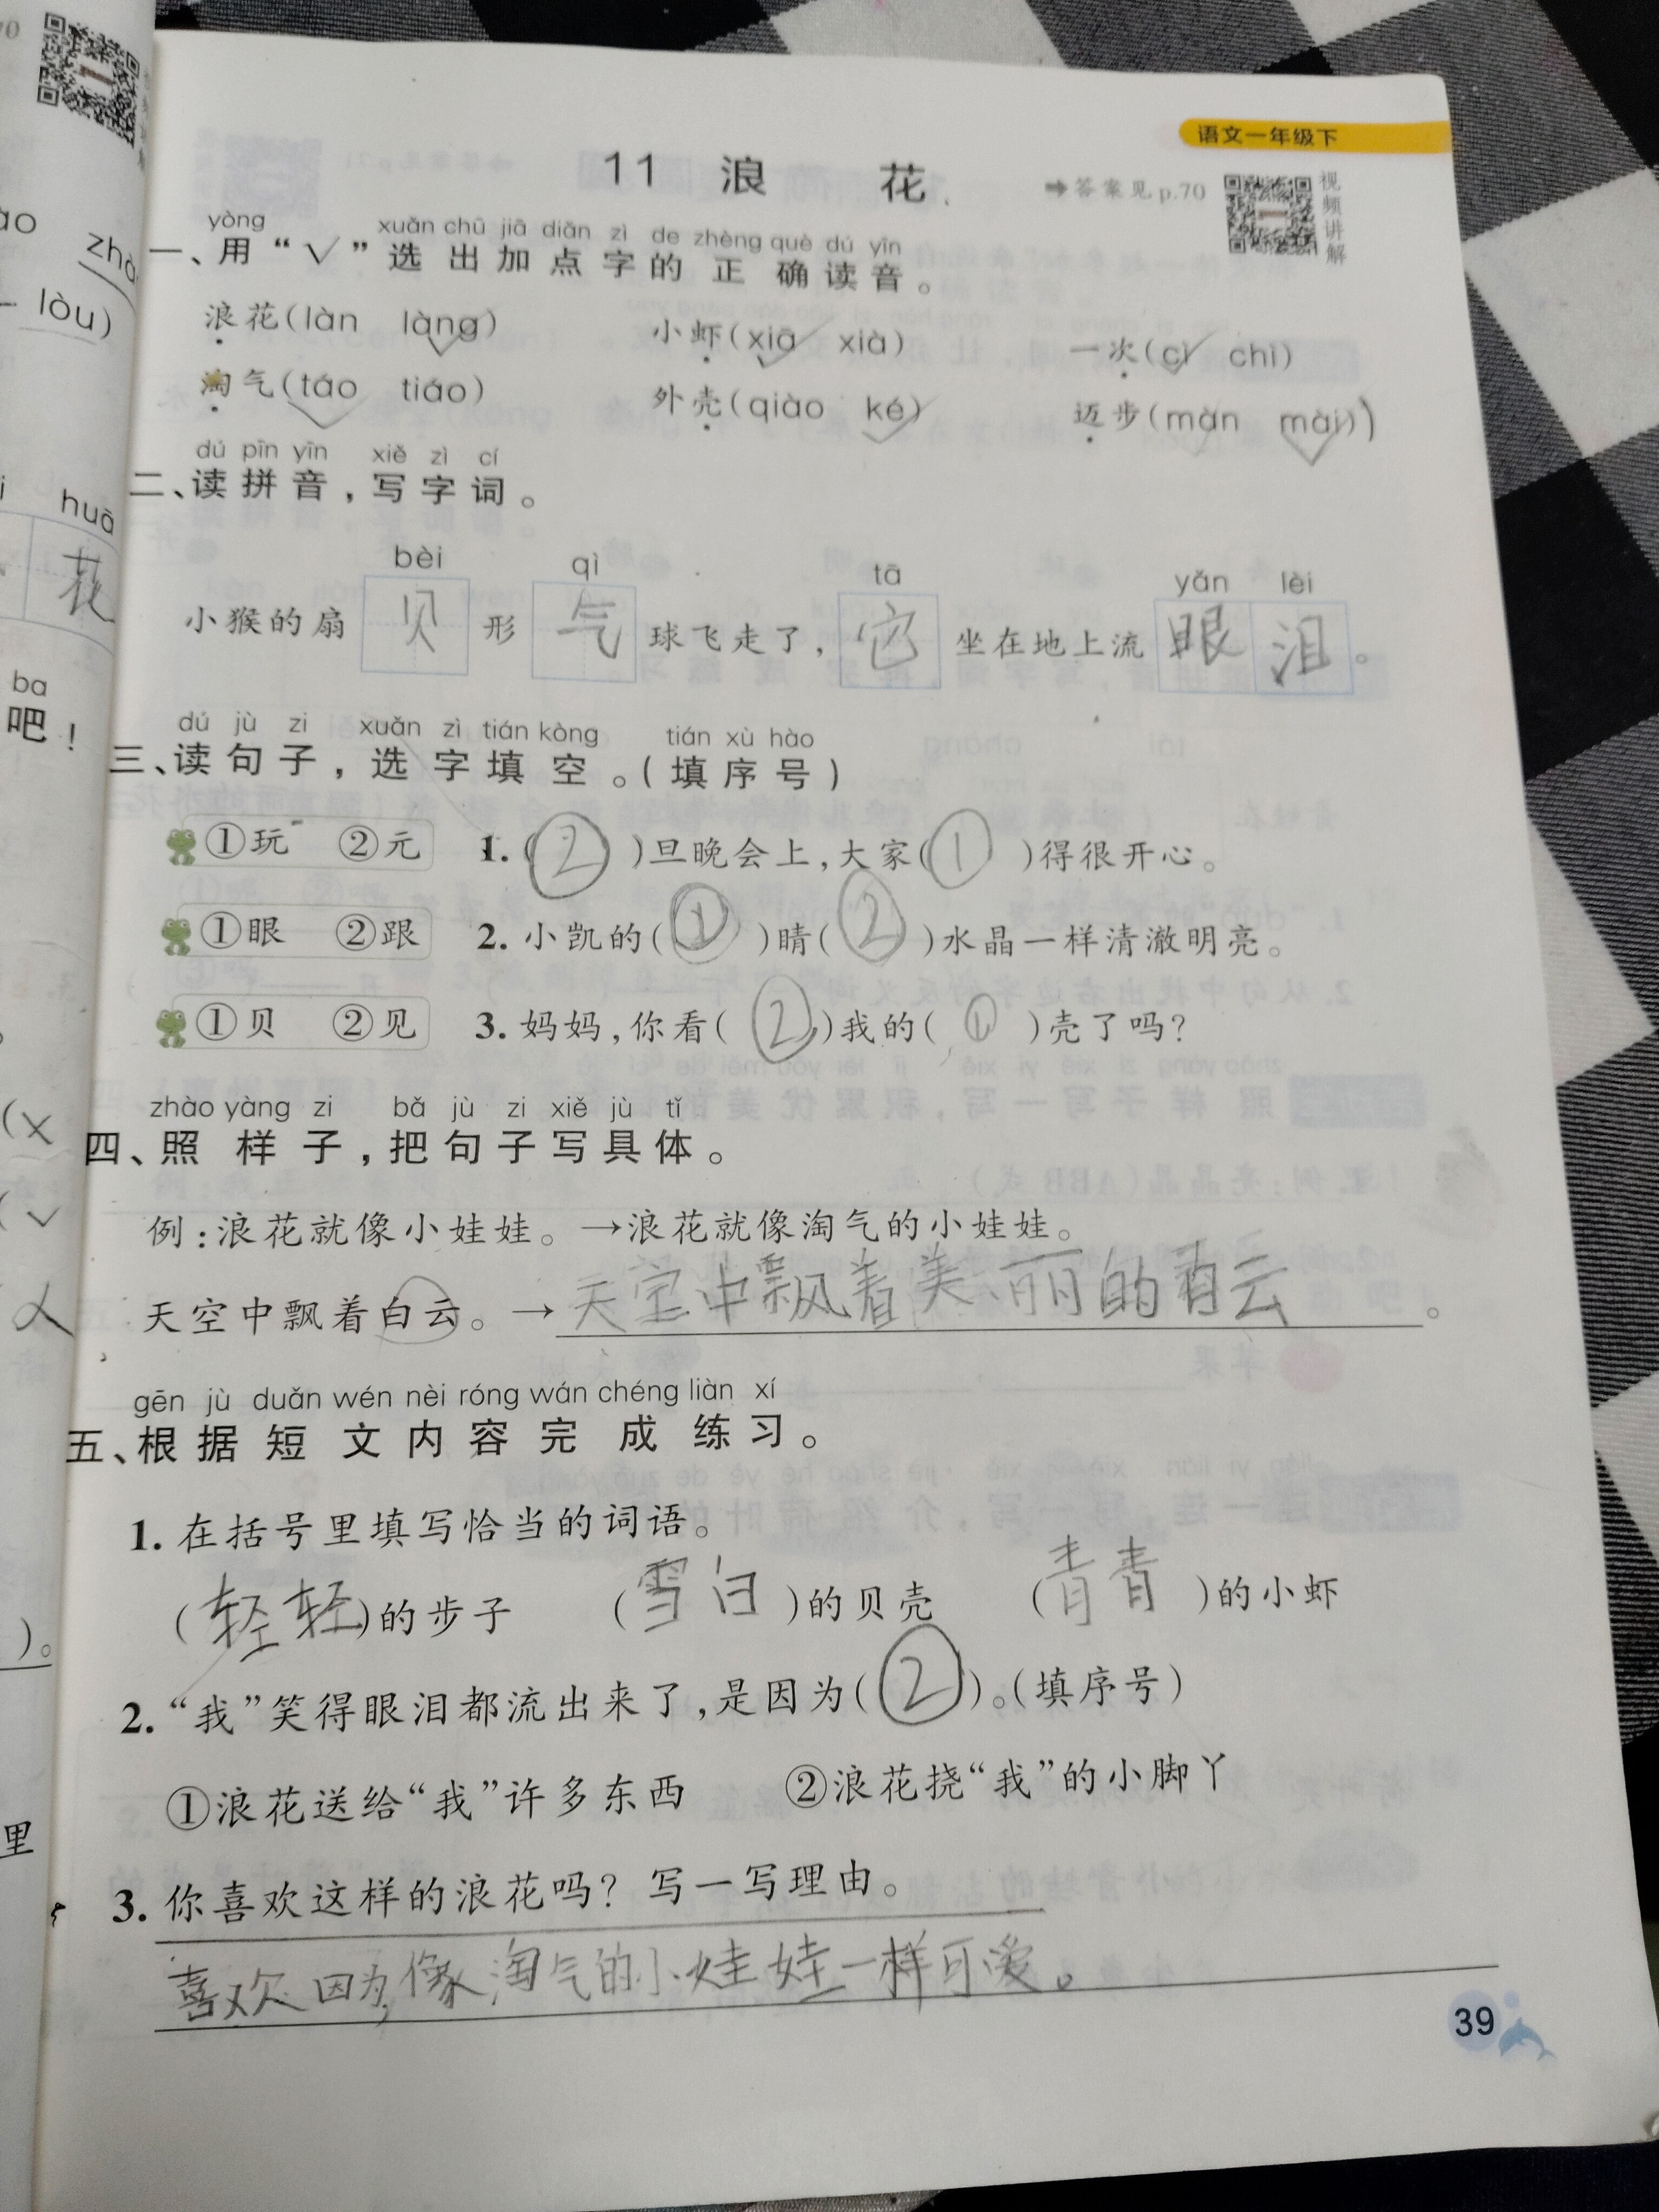 语文一年级下
11 浪 花
➡答案见p.70
视频讲解
yòng xuǎn chū jiā diǎn zì de zhèng què dú yīn
一、用“√”选出加点字的正确读音。
浪花(làn làng) 小虾(xiā xià) 一次(cì chì)
淘气(táo tiáo) 外壳(qiào ké) 迈步(màn mài)
dú pīn yīn xiě zì cí
二、读拼音,写字词。
bèi qì tā yǎn lèi
小猴的扇贝形气球飞走了,它坐在地上流眼泪。
dú jù zi xuǎn zì tián kòng tián xù hào
三、读句子,选字填空。(填序号)
①玩 ②元 1.(②)旦晚会上,大家(①)得很开心。
①眼 ②跟 2.小凯的(①)睛(②)水晶一样清澈明亮。
①贝 ②见 3.妈妈,你看(②)我的(①)壳了吗?
zhào yàng zi bǎ jù zi xiě jù tǐ
四、照样子,把句子写具体。
例:浪花就像小娃娃。→浪花就像淘气的小娃娃。
天空中飘着白云。→天空中飘着美丽的白云。
gēn jù duǎn wén nèi róng wán chéng liàn xí
五、根据短文内容完成练习。
1.在括号里填写恰当的词语。
(轻轻)的步子 (雪白)的贝壳 (青青)的小虾
2.“我”笑得眼泪都流出来了,是因为(②)。(填序号)
①浪花送给“我”许多东西 ②浪花挠“我”的小脚丫
3.你喜欢这样的浪花吗?写一写理由。
喜欢因为,像淘气的小娃娃一样可爱。
39
lòu)
huā
花
ba
吧!
里